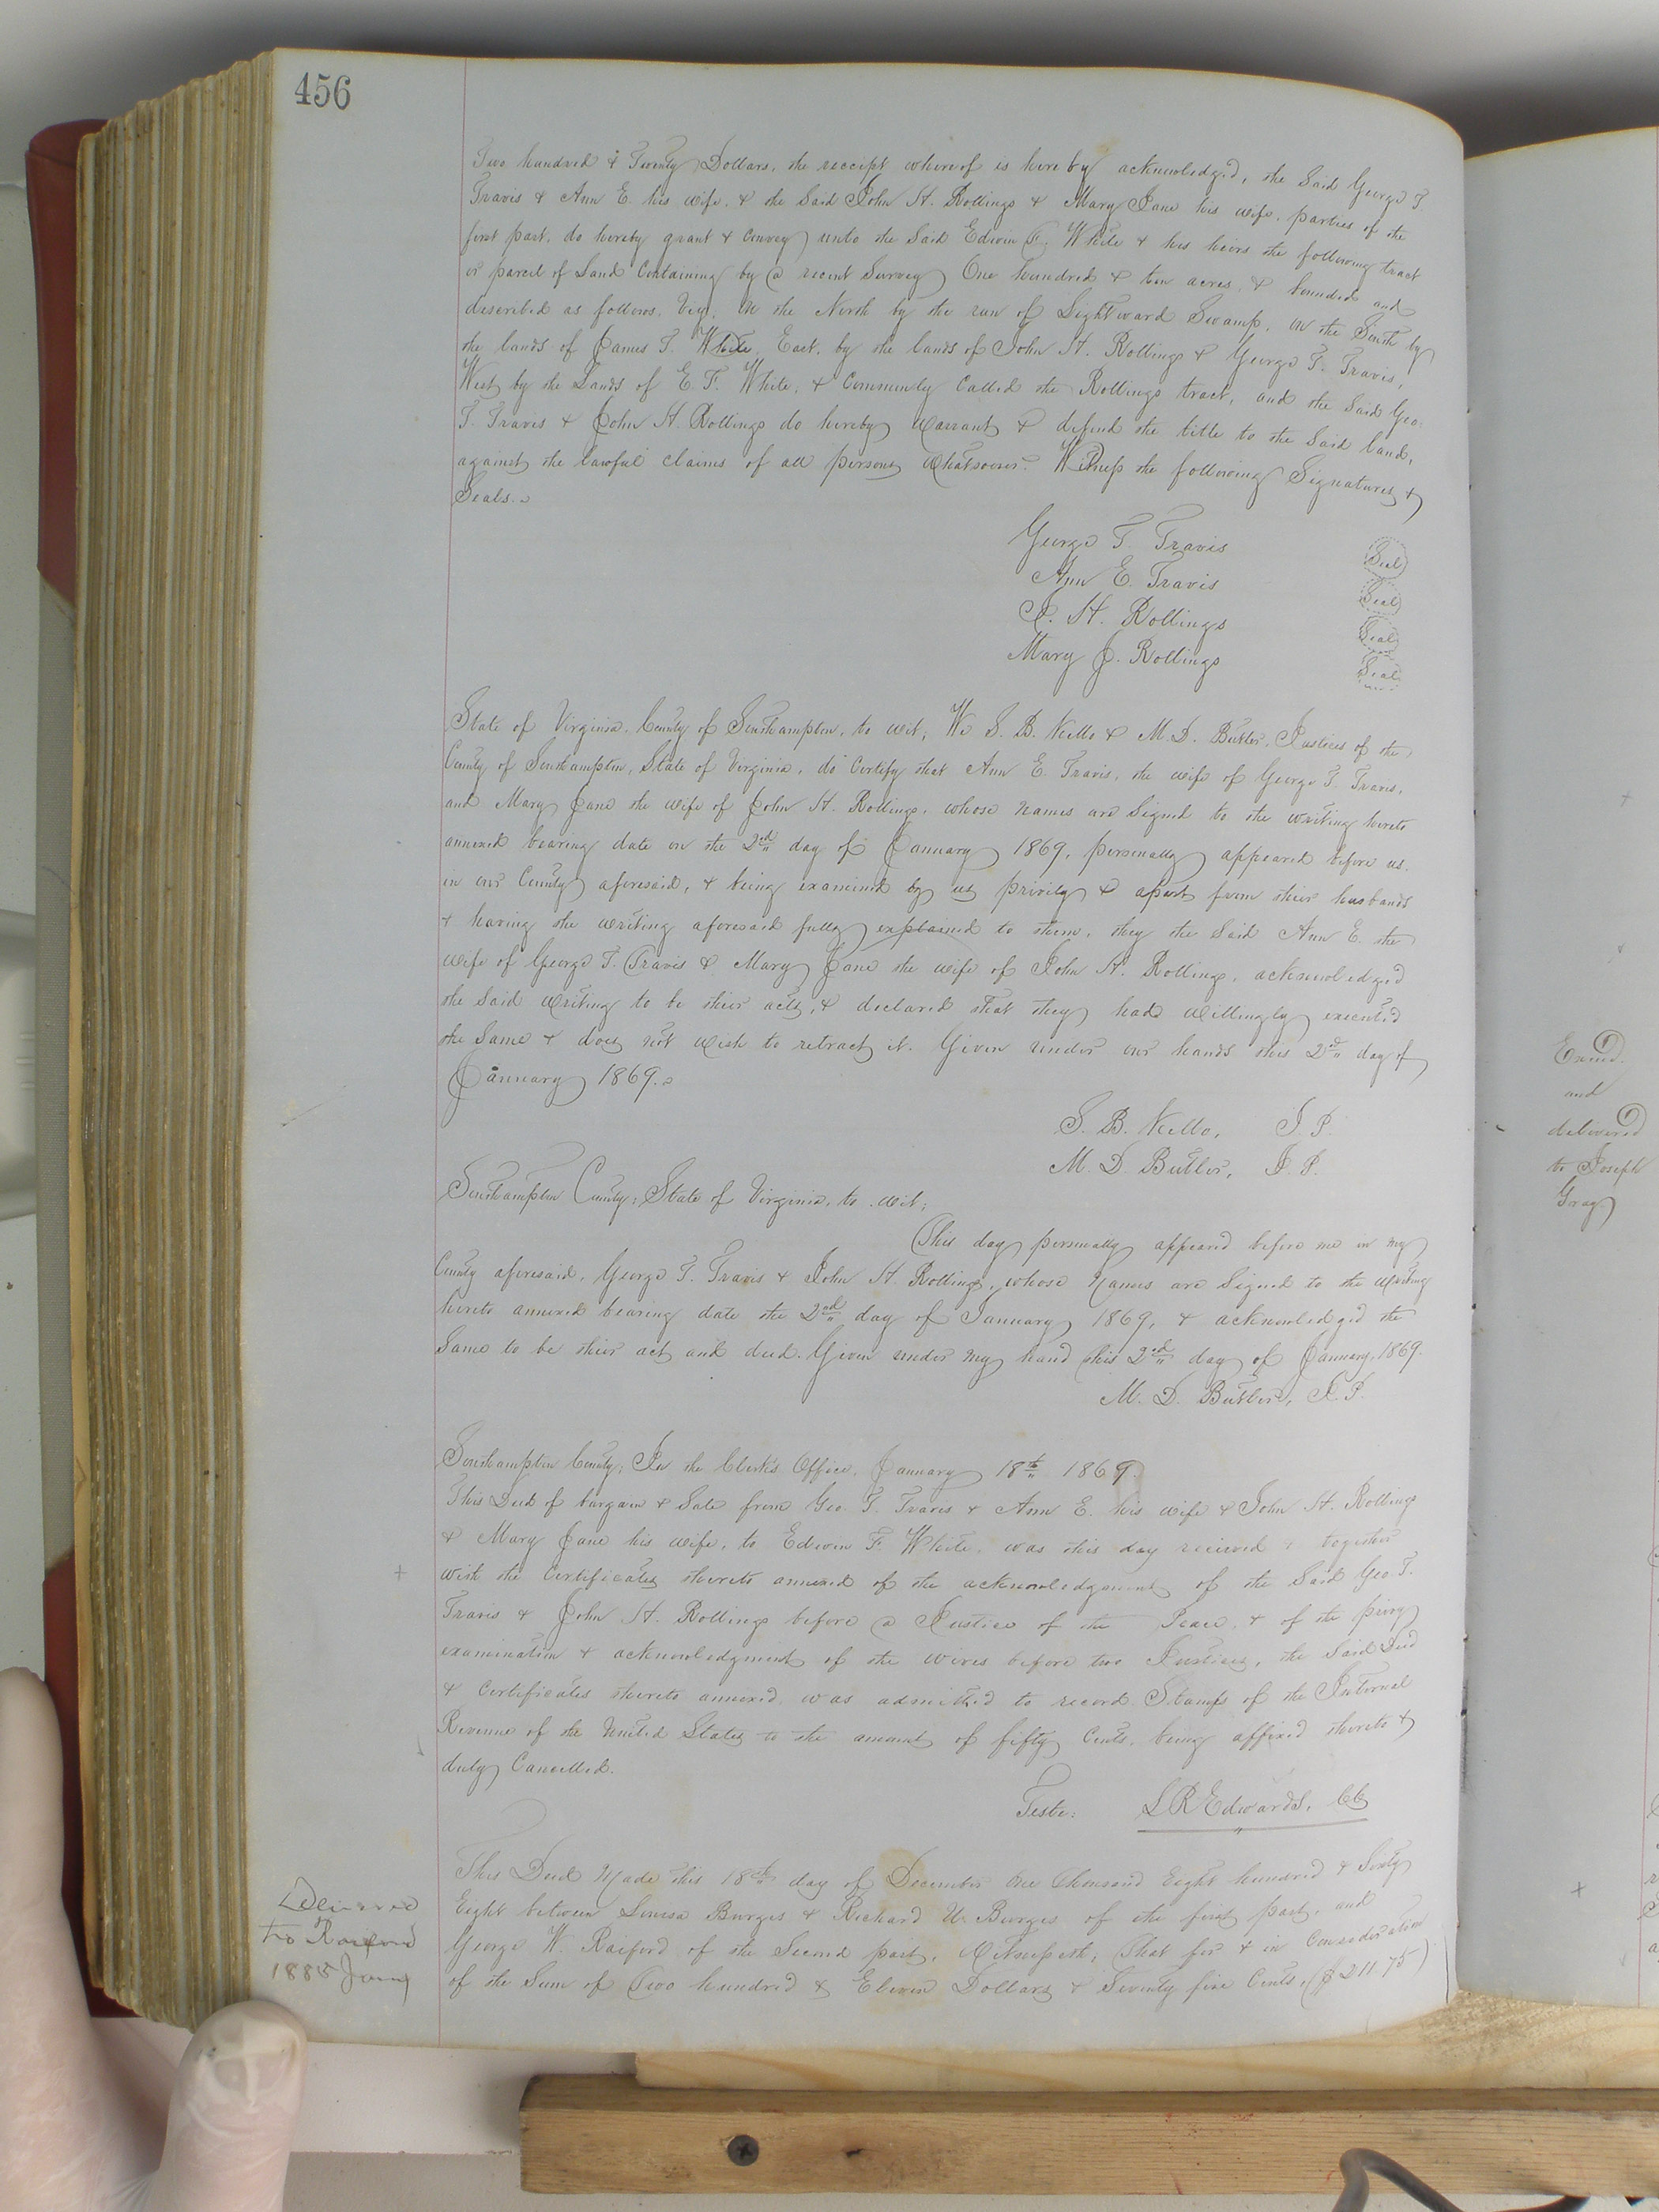 456
Two hundred & Twenty Dollars, the receipt whereof is hereby acknowledged, the Said George T.
Travis & Ann E. his wife, & the Said John H. Rollings & Mary Jane his wife, parties of the
first part, do hereby grant & Convey unto the Said Edwin F. White & his heirs the following tract
or parcel of Land Containing by a recent Survey One hundred & ten acres, & bounded and
described as follows, Viz, On the North by the run of Lightward Swamp, on the South by
the lands of James T. White, East, by the lands of John H. Rollings & George T. Travis,
West by the Lands of E. F. White, & Commonly Called the Rollings tract, and the Said Geo.
T. Travis & John H. Rollings do hereby Warrant & defend the title to the Said land,
against the lawful claims of all persons Whatsoever. Witness the following Signatures &
Seals.
George T. Travis Seal
Ann E. Travis Seal
J. H. Rollings Seal
Mary J. Rollings Seal
State of Virginia, County of Southampton, to wit; We S. B. Kello & M. D. Butler, Justices of the
County of Southampton, State of Virginia, do Certify that Ann E. Travis, the wife of George T. Travis,
and Mary Jane the wife of John H. Rollings, whose names are Signed to the writing hereto
annexed bearing date on the 2nd day of January 1869, personally appeared before us,
in our County aforesaid, & being examined by us privily & apart from their husbands
& having the writing aforesaid fully explained to them, they the Said Ann E. the
wife of George T. Travis & Mary Jane the wife of John H. Rollings, acknowledged
the Said writing to be their acts, & declared that they had willingly executed
the Same & does not Wish to retract it. Given under our hands this 2nd day of
January 1869.
S. B. Kello, J. P.
M. D. Butler, J. P.
Southampton County, State of Virginia, to wit;
This day personally appeared before me in my
County aforesaid, George T. Travis & John H. Rollings, whose Names are Signed to the Writing
hereto annexed bearing date the 2nd day of January 1869, & acknowledged the
Same to be their act and deed. Given under my hand this 2nd day of January, 1869.
M. D. Butler, J. P.
Southampton County; In the Clerk's Office, January 18th 1869.
This Deed of bargain & Sale from Geo. T. Travis & Ann E. his wife & John H. Rollings
& Mary Jane his wife, to Edwin F. White, was this day received & together
with the Certificates thereto annexed of the acknowledgment of the Said Geo. T.
Travis & John H. Rollings before a Justice of the Peace, & of the privy
examination & acknowledgment of the wives before two Justices, the Said Deed
& Certificates thereto annexed, was admitted to record. Stamps of the Internal
Revenue of the United States to the amount of fifty Cents, being affixed thereto &
duly Cancelled.
Teste: L R Edwards, CC
This Deed Made this 18th day of December One Thousand Eight hundred & Sixty
Eight between Louisa Burges & Richard U. Burges of the first part, and
George W. Raiford of the Second part, Witnesseth; That for & in Consideration
of the Sum of Two hundred & Eleven Dollars & Seventy five Cents, ($211.75)
Delivered
to Raiford
1885 Jany
Examd.
and
delivered
to Joseph
Gray